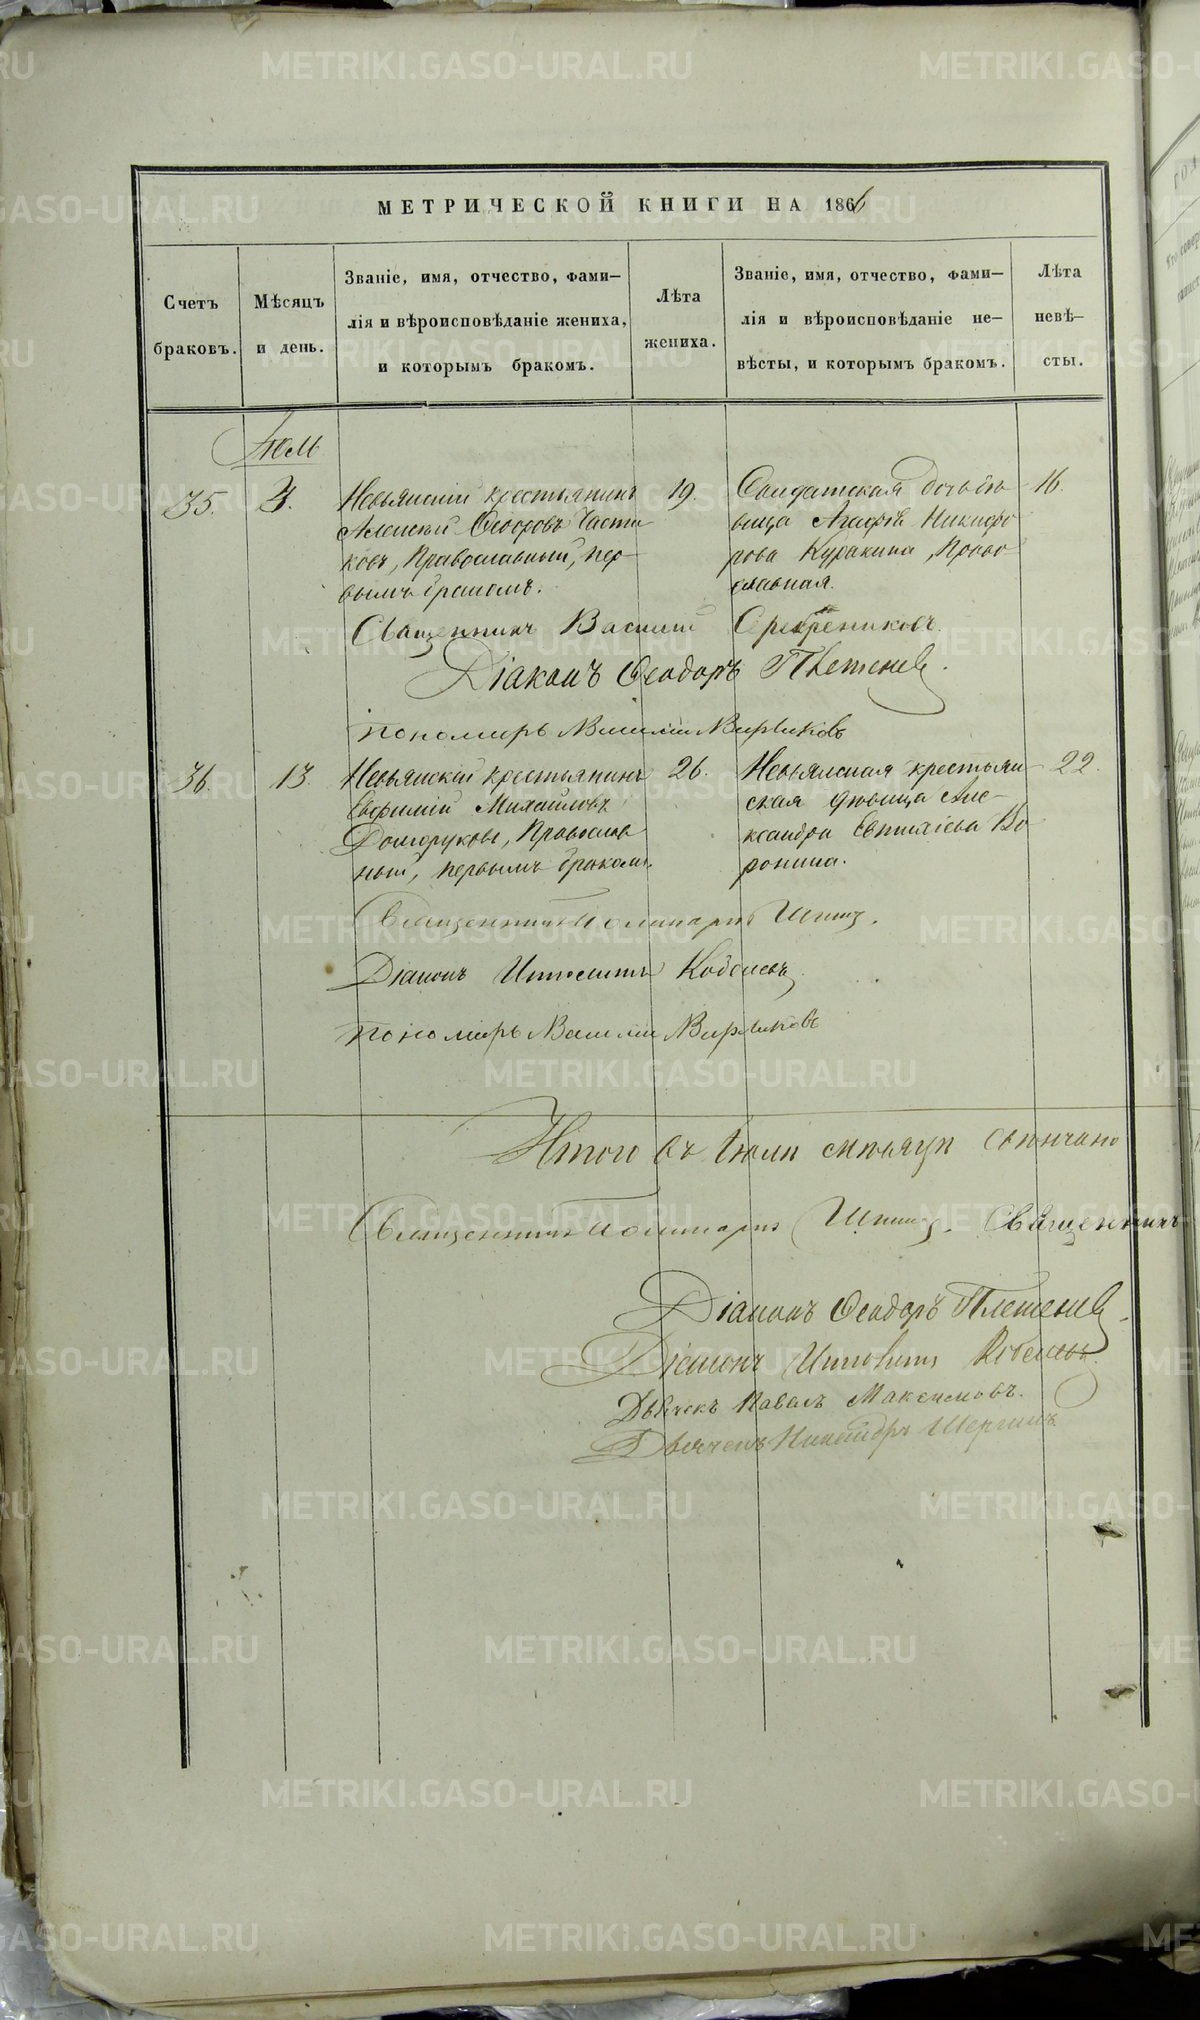 МЕТРИЧЕСКОЙ КНИГИ НА 1866
Счетъ браковъ.
Мѣсяцъ и день.
Званіе, имя, отчество, фами-
лія и вѣроисповѣданіе жениха,
и которымъ бракомъ.
Лѣта жениха.
Званіе, имя, отчество, фами-
лія и вѣроисповѣданіе не-
вѣсты, и которымъ бракомъ.
Лѣта невѣ-
сты.
Іюль
35.
3.
Невьянскій крестьянинъ
Алексѣй Ѳедоровъ Части
ковъ, Православный, пер-
вымъ бракомъ.
19.
Солдатская дочь дѣ-
вица Агафія Никифо
рова Куракина, Право
славная.
16.
Священникъ Василій Серебрениковъ.
Діаконъ Ѳеодоръ Плетенев
пономарь Василій
36.
13.
Невьянскій крестьянинъ
Евфимій Михайловъ
Долгоруковъ, Православ
ный, первымъ бракомъ.
26.
Невьянская крестьян-
ская дѣвица Але-
ксандра Евтихіева Во
ронина.
22.
Священникъ
Діаконъ Ипполитъ
пономарь Василій
Итого въ Іюлѣ мѣсяцѣ свенчано
Священникъ
Священникъ
Діаконъ Ѳеодоръ Плетенев
Діаконъ Ипполитъ
Дьячекъ Павелъ Максимовъ.
Дьячекъ Никандръ Шергинъ
METRIKI.GASO-URAL.RU